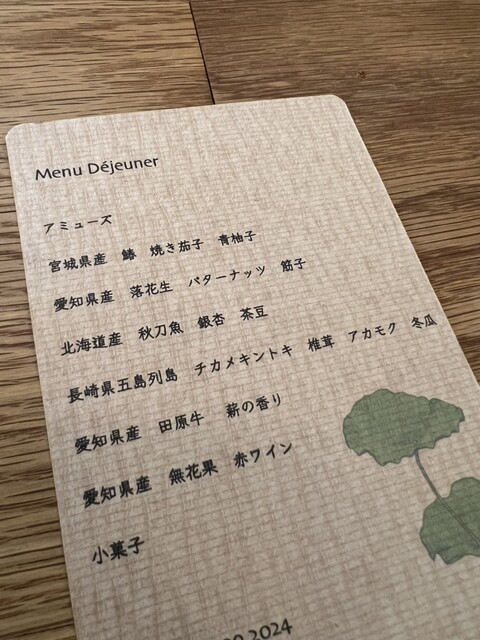 Menu Déjeuner
アミューズ
宮城県産 鰆 焼き茄子 青柚子
愛知県産 落花生 バターナッツ 筋子
北海道産 秋刀魚 銀杏 茶豆
長崎県五島列島 チカメキントキ 椎茸 アカモク 冬瓜
愛知県産 田原牛 薪の香り
愛知県産 無花果 赤ワイン
小菓子
2024